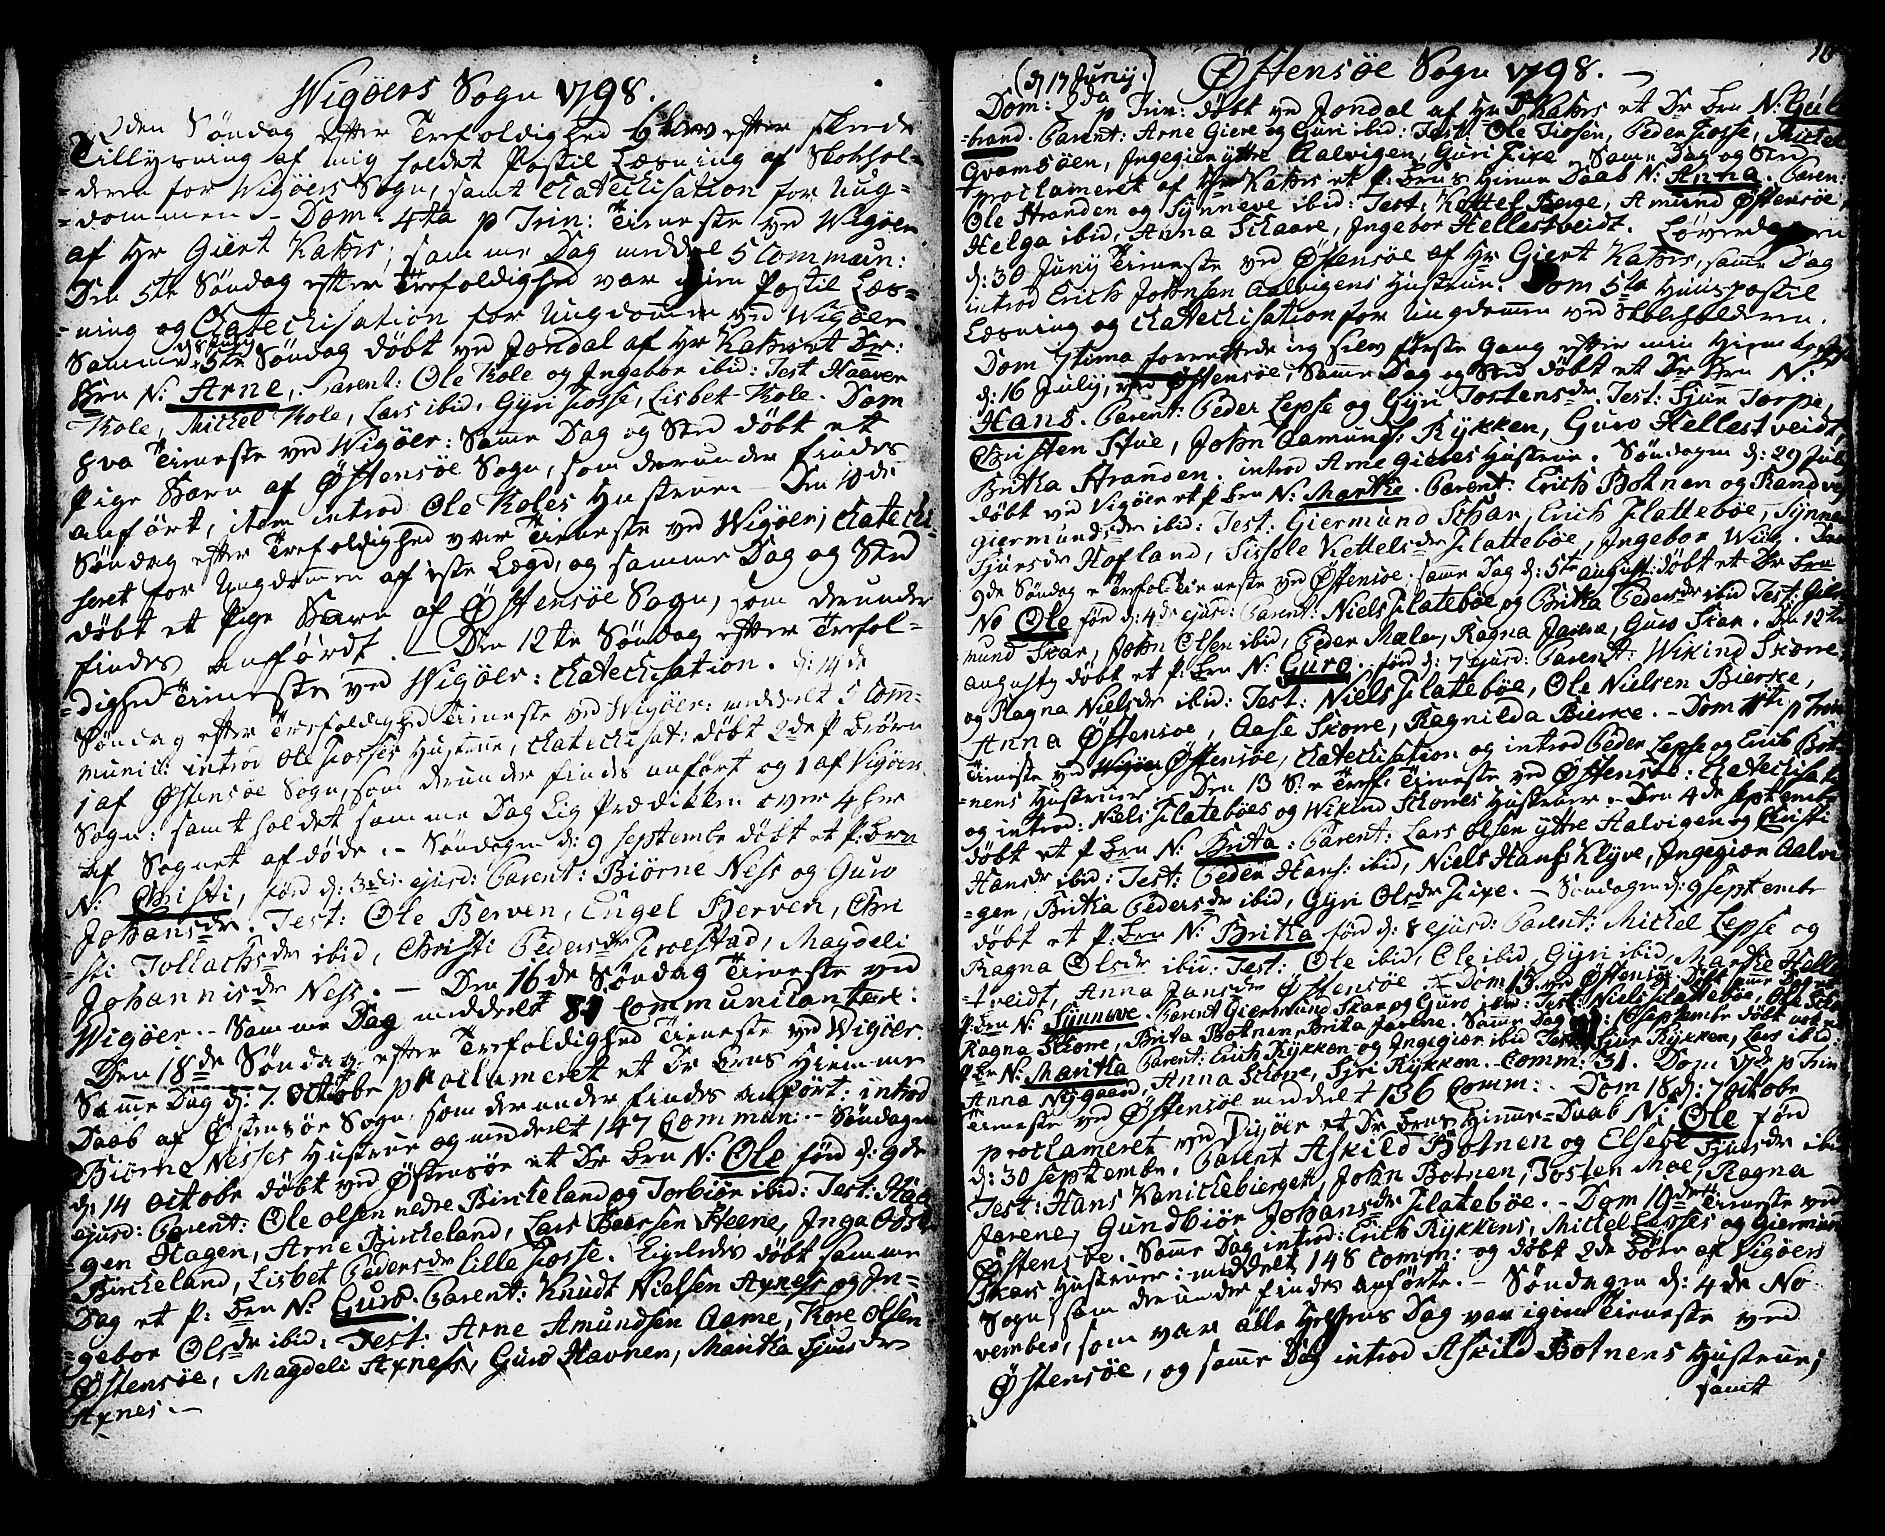 Wigøers Sogn 1798.
2den Søndag efter Trefoldighed blev efter skeede
Tillysning af mig holdet Postil Læsning af Skolehol-
=deren for Wigøers Sogn, samt Catechisation for Ung-
=dommen - Dom: 4ta p Trin: Tieneste ved Wigøer
af Hr Giert Kahrs, samme Dag meddeel 5 Commun:
Den 5te Søndag efter Trefoldighed var igien Postil Læs=
=ning og Catechisation for Ungdommen ved Wigøer
Samme 5te Søndag døbt ved Jondal af Hr Kahrs et Dr:
Brn N: Arne, Parent: Ole Kole og Ingebor ibid: Test Haaver
Kole, Michel Kole, Lars ibid, Gÿri Fosse, Lisbet Kole. Dom
8va Tieneste ved Wigøer: Samme Dag og Sted døbt et
Pige Barn af Østensøe Sogn, som derunder findes
anført, item introd Ole Koles Hustrue. - Den 10de
Søndag efter Trefoldighed var Tieneste ved Wigøer, Catechi-
seret for Ungdommen af 1ste Lægd, og samme Dag og Sted
døbt et Pige Barn af Østensøe Sogn, som derunder
findes anførdt. - Den 12te Søndag efter Trefol-
=dighed Tieneste ved Wigøer: Catechisation. d: 14de
Søndag efter Trefoldighed Tieneste ved Wigøer: meddelt 5 Com-
munic: introd Ole Fosses Hustrue, Catechisat: døbt 2de P Børn
1 af Østensøe Sogn, som derunder findes anført og 1 af Vigøer
Sogn: samt holdet samme Dag Lig Prædikken over 4 her
af Sognet afdøde. - Søndagen d: 9 Septembr døbt et P: Brn
N: Christi, fød d: 3die ejusd: Parent: Biørne Ness og Guro
Johansdr. Test: Ole Berven, Engel Berven, Chri
sti Tollachsdr ibid, Christi Pedersdr Troestad, Magdeli
Johannisdr Ness. - Den 16de Søndag Tieneste ved
Wigøer. - Samme Dag meddeelt 87 Communicantere:
Den 18de Søndag efter Trefoldighed Tieneste ved Wigøer.
Samme Dag d: 7. Octobr proclameret et Dr Brns Hiemme
Daab af Østensøe Sogn, som derunder findes anført: introd
Biørne Nesses Hustrue og meddeelt 147 Commun: - Søndagen
d: 14 Octobr døbt ved Østensøe et Dr Brn N: Ole fød d: 9de
ejusd: Parent: Ole Olsen nedre Birkeland og Torbiør ibid: Test:
gen Hagen, Arne Birkeland, Lars Larsen Steene, Inga
Birkeland, Lisbet Pedersdr lille Fosse. Ligeledes døbt samme
Dag et P: Brn N: Guro. Parent: Knudt Nielsen Axness og In=
gebor Olsdr ibid: Test: Arne Amundsen Aame, Kore Olsen
Østensøe, Magdeli Axness, Guro Havnen, Maritha Siursdr
Axnes. -
(d 17 Junÿ.) Østensøe Sogn 1798. -
Dom: 2da p Trin: døbt ved Jondal af Hr Kahrs et Dr Brn N: Gul
=brand. Parent: Arne Giere og Guri ibid: Test: Ole Fosse, Peder Fosse, Michel
Qvamsøen, Ingegier ÿttre Aalvigen, Guri Fixe. Samme Dag og Sted
proclameret af Hr Kahrs et P: Brns Hiemme Daab N: Anna. Paren:
Ole Stranden og Sÿnneve ibid: Test: Kettel Berge, Amund Østensøe,
Helga ibid, Anna Skaare, Ingebor Hellestveidt. Løverdagen
d: 30 Junÿ Tieneste ved Østensøe af Hr Giert Kahrs, samme Dag
introd Erich Johnsen Aalvigens Hustrue. Dom 5ta Huuspostil
Læsning og Catechisation for Ungdommen ved Skoleholderen.
Dom 7tima forrettede ieg selv første Gang efter min Hiemkomst
d: 16 Julÿ, ved Østensøe, Samme Dag og Sted døbt et Dr Brn N:
Hans. Parent: Peder Lepse og Gÿri Tostensdr. Test: Siur Torpe,
Christen Stue, John Aamunds: Rÿkken, Guro Hellestveidt,
Britha Stranden. introd Arne Gieres Hustrue. Søndagen d: 29 Julÿ
døbt ved Vigøer et P: Brn N: Marthe. Parent: Erich Botnen og Randvei
Giermundsdr ibid: Test: Giermund Schar, Erich Flattebøe, Sÿnneve
Siursdr Hofland, Sissele Kettelsdr Flattebøe, Ingebor Wiig. Den
9de Søndag e Trefol: Tieneste ved Østensøe. samme Dag d: 5te August: døbt et Dr Brn
No Ole fød d: 4de ejusd: Parent: Niels Flatebøe og Britha Pedersdr ibid Test: Gier
mund Skar, John Olsen ibid, Peder Mæln, Ragna Jarene, Guro Skar. Den 12te
Augusty døbt et P: Brn N: Guro. fød d: 7 ejusd: Parent: Wikind Skone
og Ragna Nielsdr ibid: Test: Niels Flatebøe, Ole Nielsen Bierke,
Anna Østensøe, Aase Skone, Ragnilda Bierke. - Dom 11ti p Trin
Tieneste ved Østensøe, Catechisation og introd Peder Lepse og Erich Bot-
=nens Hustruer. - Den 13 S: e Tref: Tieneste ved Østensøe: Catechisat:
og introd: Niels Flatebøes og Wikind Skones Hustruer. - Den 4de Septembr
døbt et P Brn N: Brita: Parent: Lars Olsen ÿttre Aalvigen og Christi
Hansdr ibid: Test: Peder Hans: ibid, Niels Hans: Klÿve, Ingegier Aalvi
=gen, Britha Pedersdr ibid, Gÿri Olsdr Fixe. - Søndagen d: 9 Septembr
døbt et P: Brn N: Britha fød d: 8 ejusd: Parent: Michel Lepse og
Ragna Olsdr ibid: Test: Ole ibid, Ole ibid, Gÿri ibid, Marthe Helle
=tveidt, Anna Jansdr Østensøe. - Dom 15 ved Østensøe. Døbt samme Dag et
P: Brn N: Sÿnneve. Parent Giermund Skar og Guro ibid: Test: Niels Flatebøe, Ole
Ragna Skone, Brita Botnen, Brita Jarene. Samme Dag d: 16 Septembr døbt
P: Br N: Maritha Parent: Erich Rÿkken og Ingegier ibid Test: Siur Rÿkken, Lars ibid:
Anna Nÿgaard, Anna Skone, Siri Rÿkken. Comm: 31. Dom 17de p Trin
Tieneste ved Østensøe meddeelt 136 Comm: - Dom 18 d: 7 octobr
proclameret ved Vigøer et Dr Brns Hiemme-Daab N: Ole fød
d: 30 Septembr. Parent Askild Botnen og Elsebe Siursdr ibid
Test: Hans Kanickebierget, John Botnen, Tosten Moe, Ragna
Jarene, Gundbiør Johansdr Flatebøe. - Dom 19de Tieneste ved
Østensøe. Samme Dag introd: Erich Rÿkkens, Michel Lepses og Giermund
Skars Hustruer: meddelt 148 Comm: og døbt 2de Børn af Vigøers
Sogn, som derunder findes anførte. - Søndagen d: 4de No-
vember, som var alle Helgens Dag var igien Tieneste ved
Østensøe, og samme Dag introd Askild Botnens Hustrue;
samt